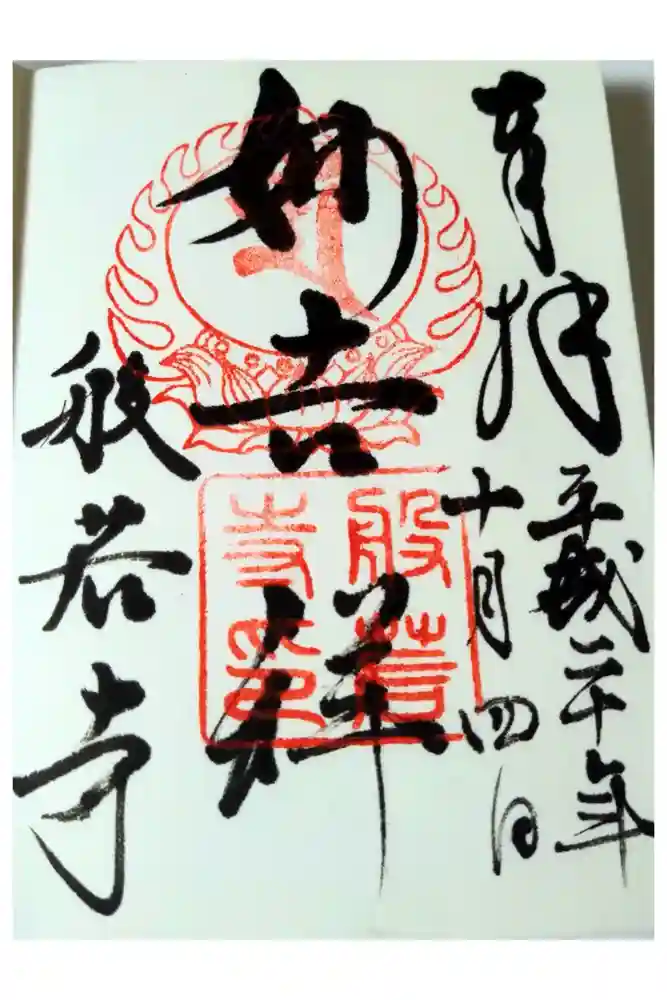 奉拝
平成二十年
十月四日
妙吉祥
般若
寺印
般若寺